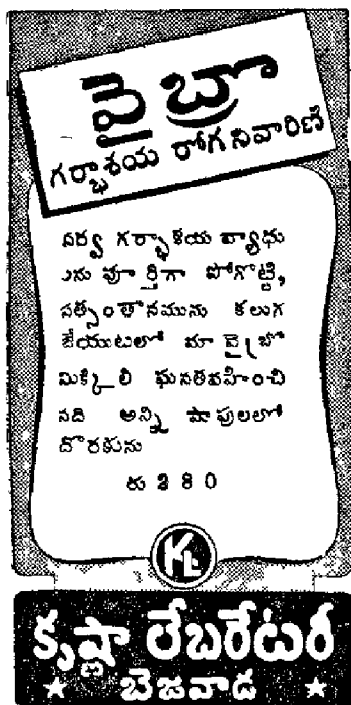 వైబ్రా
గర్భాశయ రోగ నివారిణి
సర్వ గర్భాశయ వ్యాధు
లను పూర్తిగా పోగొట్టి,
సత్సంతానమును కలుగ
జేయుటలో మా వైబ్రో
మిక్కిలి ఘనతవహించి
నది అన్ని షాపులలో
దొరకును
రు 3 8 0
KL
కృష్ణా లేబరేటరీ
బెజవాడ